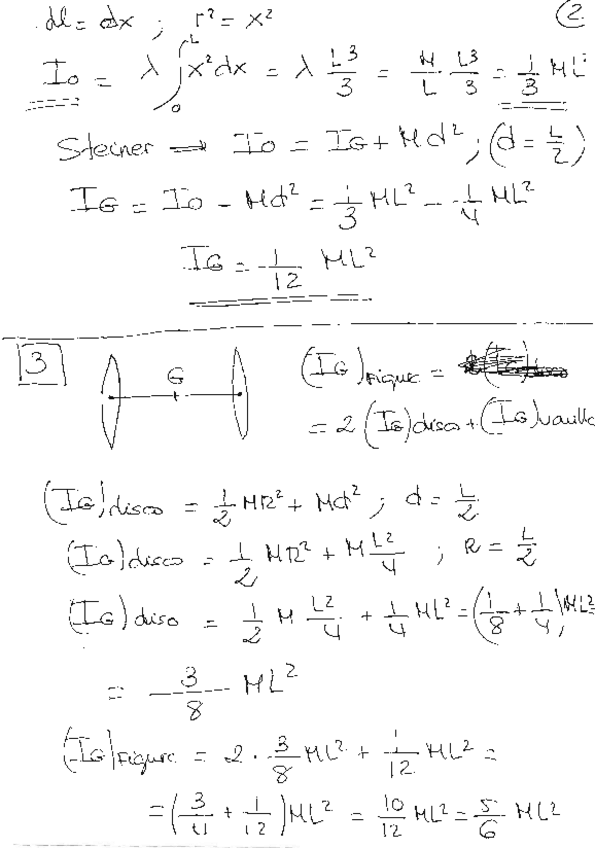 2.
dl = dx ; r² = x²
I₀ = λ ∫₀ᴸ x²dx = λ L³/3 = M/L · L³/3 = 1/3 ML²
Steiner → I₀ = I_G + Md² ; (d = L/2)
I_G = I₀ - Md² = 1/3 ML² - 1/4 ML²
I_G = 1/12 ML²
3
G
(I_G)Figura =
= 2 (I_G)disco + (I_G)varilla
(I_G)disco = 1/2 MR² + Md² ; d = L/2
(I_G)disco = 1/2 MR² + M L²/4 ; R = L/2
(I_G)disco = 1/2 M L²/4 + 1/4 ML² = (1/8 + 1/4) ML²
= 3/8 ML²
(I_G)Figura = 2 · 3/8 ML² + 1/12 ML² =
= (3/4 + 1/12) ML² = 10/12 ML² = 5/6 ML²